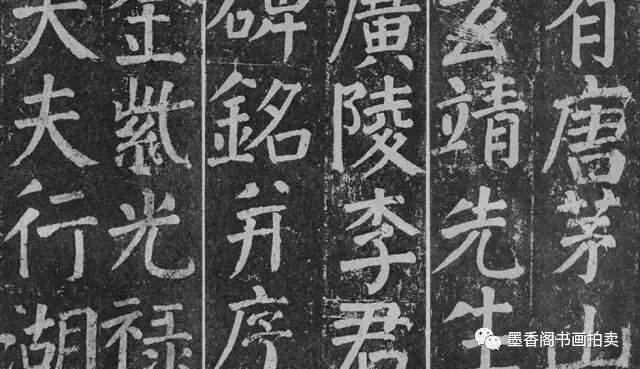 有唐茅山
玄靖先生
廣陵李君
碑銘并序
金紫光禄
大夫行湖
墨香阁书画拍卖